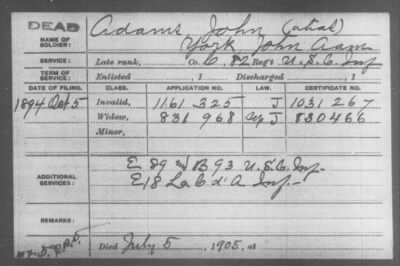 DEAD
Adams John (alias)
NAME OF SOLDIER:
York, John Aam
SERVICE: Late rank, Co. C, 82 Reg't U.S.C. Inf
TERM OF SERVICE: Enlisted , 1 Discharged , 1
DATE OF FILING. CLASS. APPLICATION NO. LAW. CERTIFICATE NO.
1894 Oct 5 Invalid, 1161 325 J 1031 267
Widow, 831 968 J 830466
Minor,
ADDITIONAL SERVICES:
E 89 & B 93 U.S.C. Inf-
E 18 La C d'A Inf-
REMARKS:
Died July 5, 1905, at